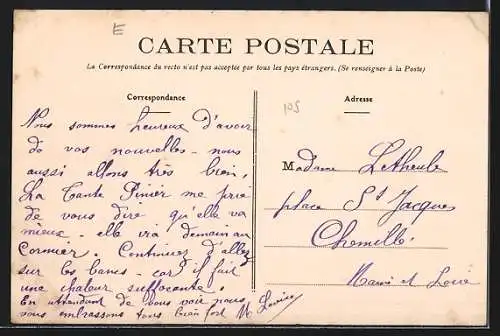 E
CARTE POSTALE
La Correspondance du recto n'est pas acceptée par tous les pays étrangers. (Se renseigner à la Poste)
Correspondance
Adresse
105
Nous sommes heureux d'avoir
de vos nouvelles - nous
aussi allons très bien,
La Tante Pinier me prie
de vous dire qu'elle va
mieux - elle ira demain au
Cormier. Continuez d'aller
sur les bancs - car il fait
une chaleur suffocante.
En attendant de vous voir nous
vous embrassons tous bien fort M. Louise
Madame Letheule
place St Jacques
Chemillé
Maine et Loire